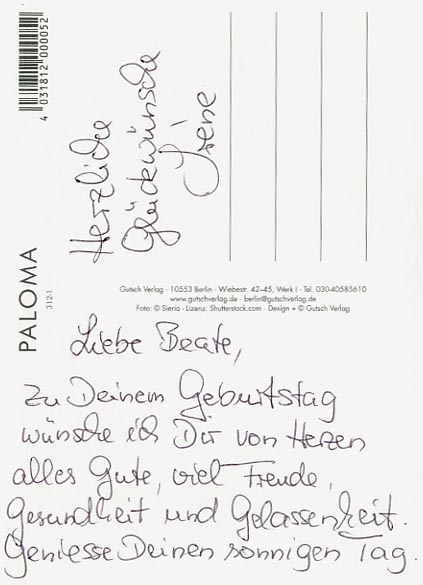 Liebe Beate,
Zu Deinem Geburtstag
wünsche ich Dir von Herzen
alles Gute, viel Freude,
Gesundheit und Gelassenheit.
Geniesse Deinen sonnigen Tag.
Herzliche
Glückwünsche
Irène
Gutsch Verlag · 10553 Berlin · Wiebestr. 42–45, Werk I · Tel. 030-40585610
www.gutschverlag.de · berlin@gutschverlag.de
Foto: © Sieria · Lizenz: Shutterstock.com · Design + © Gutsch Verlag
PALOMA
312-1
4 031812 000052